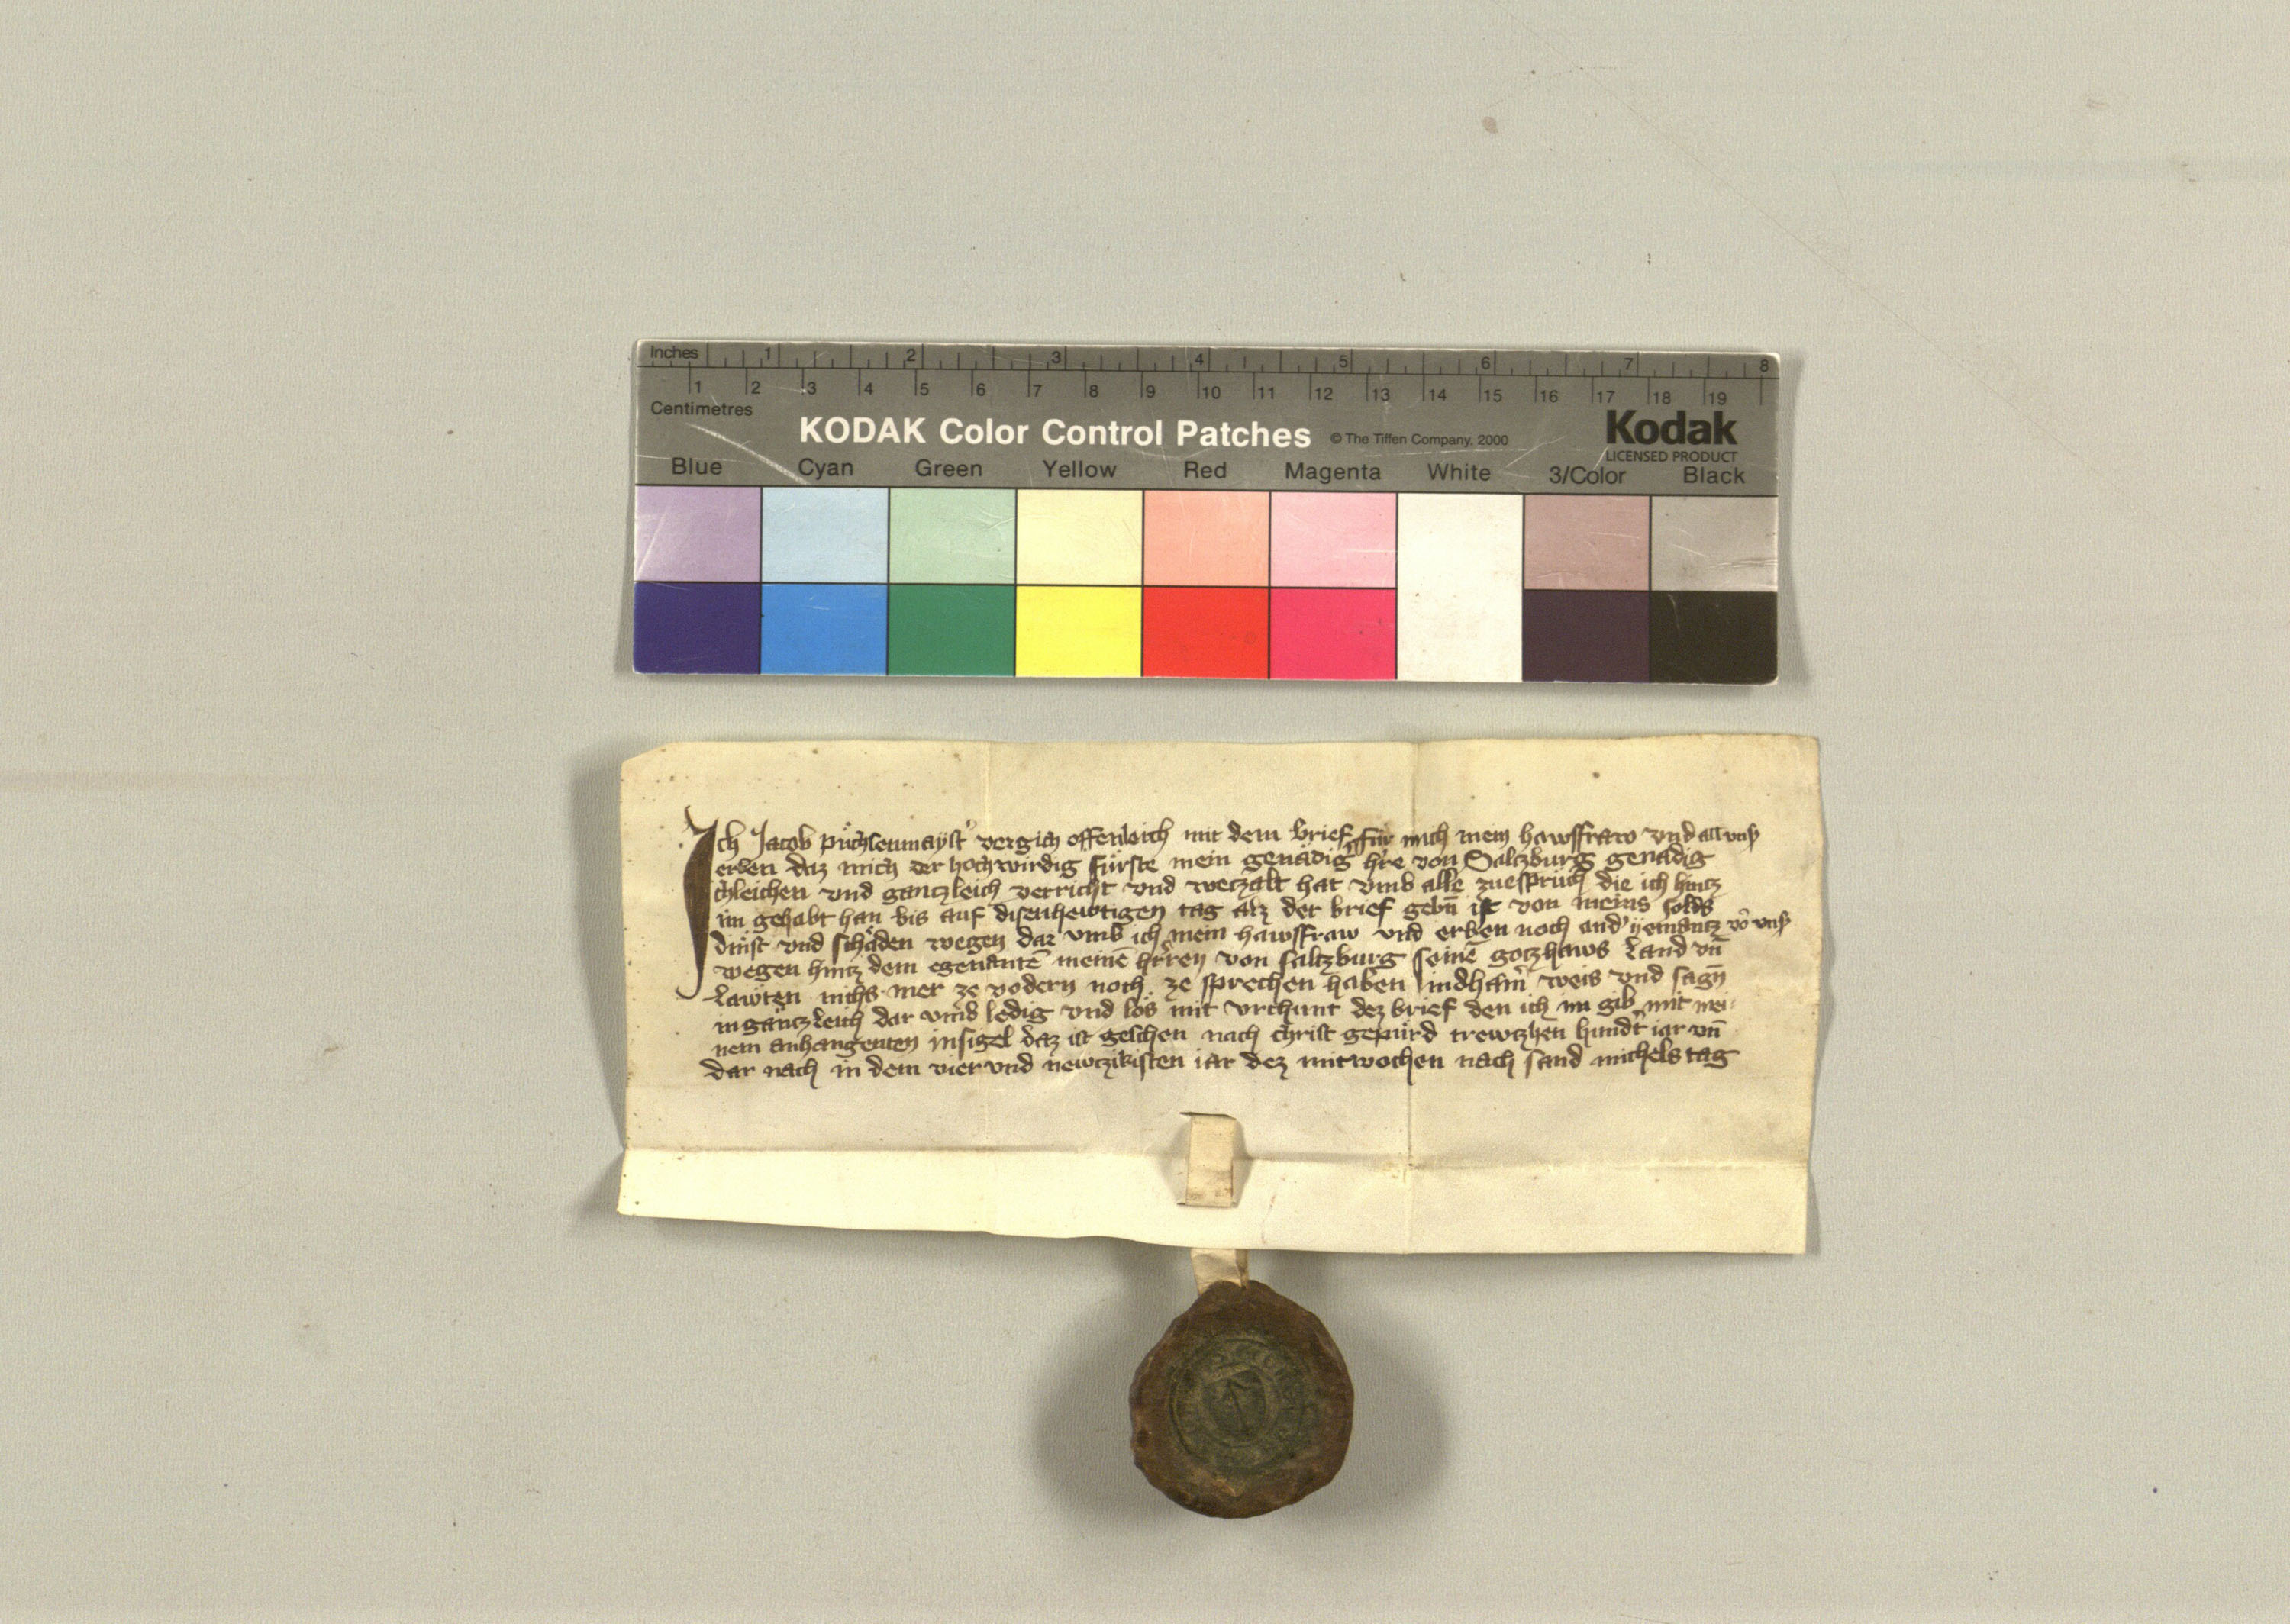 Inches 1 2 3 4 5 6 7 8
1 2 3 4 5 6 7 8 9 10 11 12 13 14 15 16 17 18 19
Centimetres
KODAK Color Control Patches © The Tiffen Company, 2000 Kodak
LICENSED PRODUCT
Blue Cyan Green Yellow Red Magenta White 3/Color Black
Ich Jacob vergich offenleich mit dem brief für mich mein hawsfraw vnd all vnß
erben daz mich der hochwirdig fürste mein genädig h're von Salczburg genädig
chleichen vnd gantzleich verricht vnd weczalt hat vmb alle zuesprüch die ich hintz
im gehabt han bis auf disen hewtigen tag alz der brief gebn̄ ist von meins solds
dinst vnd schäden wegen dar vmb ich mein hawsfraw vnd erben noch and' yemantz vō vnß
wegen hintz dem egenantē meinē h'ren von saltzburg seinē gotzhaws Land vn̄
Läwten nichs mer ze vodern noch ze sprechen haben weis vnd sagn̄
in gäntzleich dar vmb ledig vnd los mit vrchunt dez brief den ich im gib mit mei
nem anhangenten insigel daz ist geschen nach christ gepürd trewtzhen hund't iar vn̄
dar nach in dem vier vnd newtzikisten iar dez mitwochen nach sand michels tag